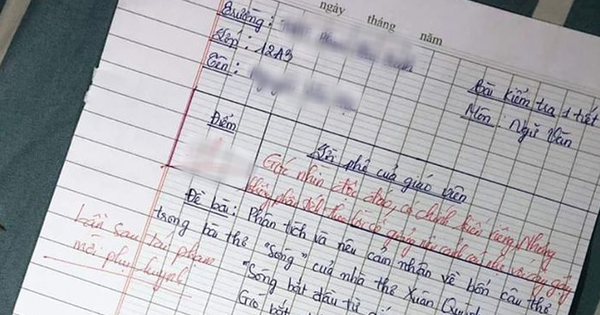 ngày tháng năm
Trường:
Lớp: 12A3
Tên:
Bài kiểm tra 1 tiết
Môn: Ngữ Văn
Điểm
Lời phê của giáo viên
Góc nhìn độc đáo, có chính kiến riêng. Nhưng
Đề bài: Phân tích và nêu cảm nhận về bốn câu thơ
trong bài thơ "Sóng" của nhà thơ Xuân Quỳnh
"Sóng bắt đầu từ
Gió bắt
Lần sau tái phạm
mời phụ huynh